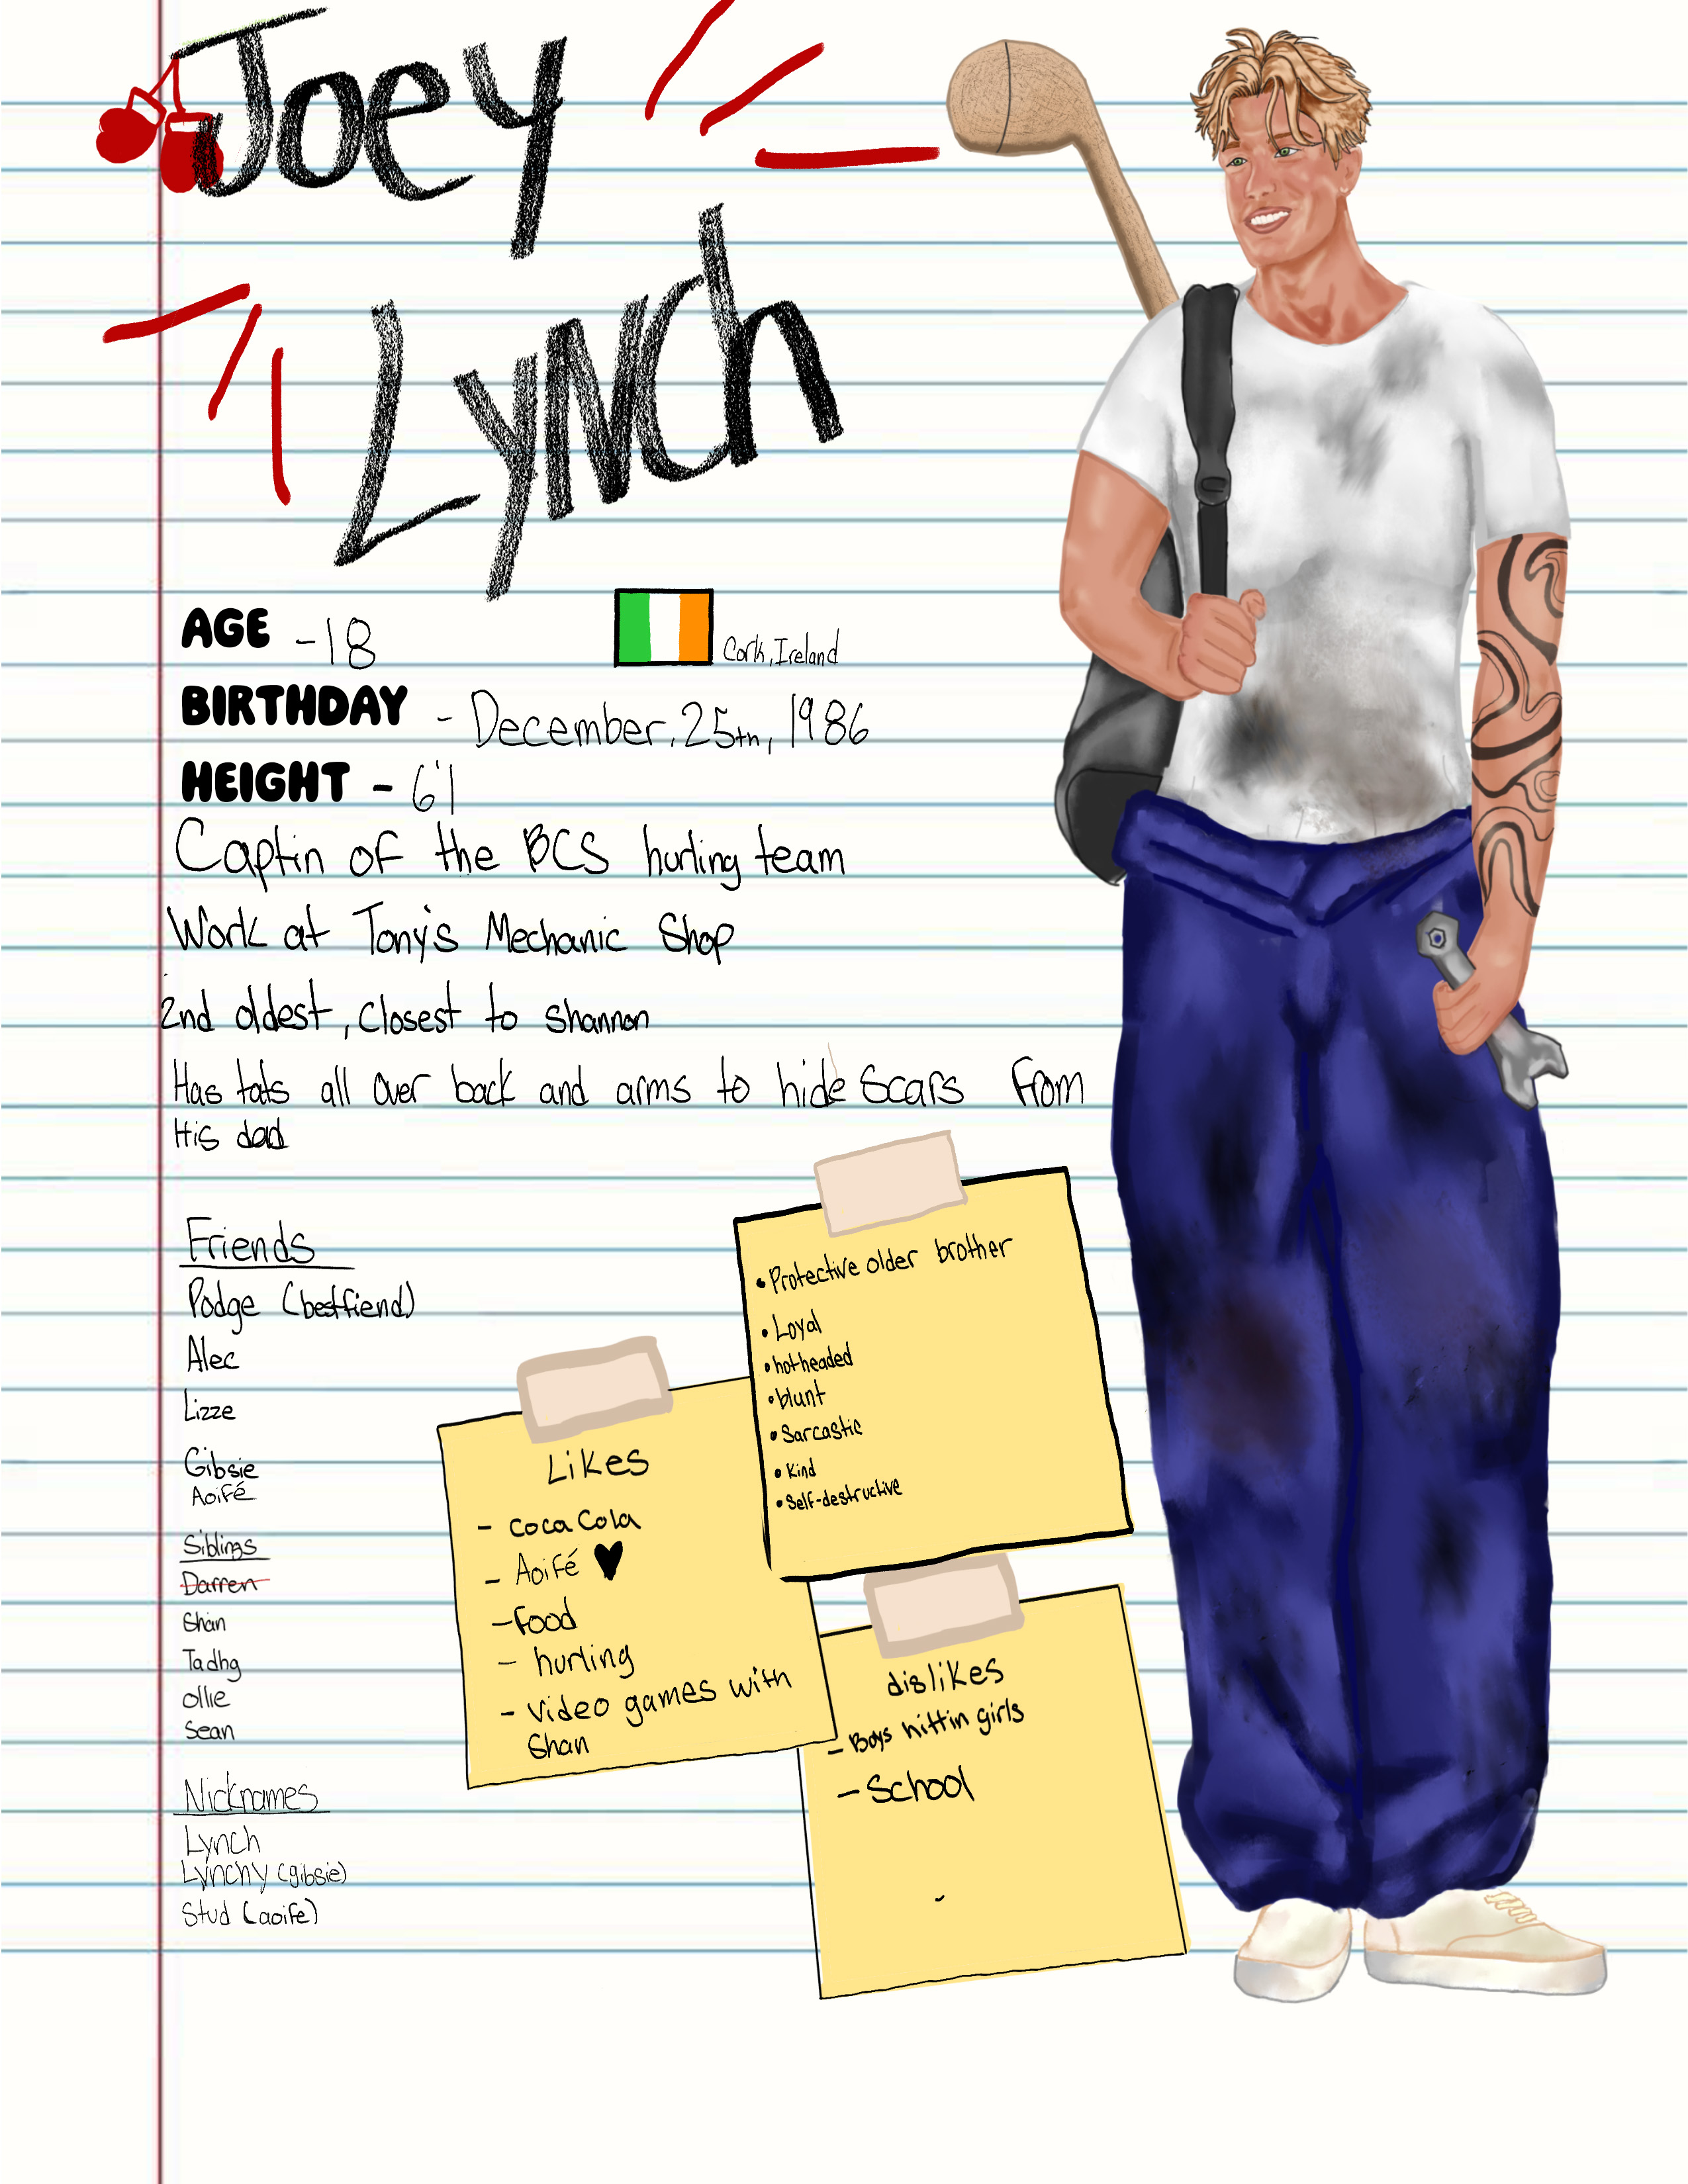 Joey
Lynch
AGE - 18
Cork, Ireland
BIRTHDAY - December. 25th, 1986
HEIGHT - 6'1
Captin of the BCS hurling team
Work at Tony's Mechanic Shop
2nd oldest, closest to shannon
Has tats all over back and arms to hide scars from
His dad
Friends
Podge (bestfiend)
Alec
Lizze
Gibsie
Aoifé
Siblings
Darren
Shan
Tadhg
ollie
Sean
Nicknames
Lynch
Lynchy (gibsie)
Stud (aoife)
• Protective older brother
• Loyal
• hotheaded
• blunt
• Sarcastic
• Kind
• Self-destructive
Likes
- coca Cola
- Aoifé ♥
- food
- hurling
- video games with
Shan
dislikes
- Boys hittin girls
- School
-